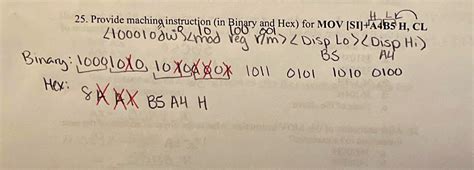 25. Provide machine instruction (in Binary and Hex) for MOV [SI]+A4B5 H, CL
H L
10 100 001
<100010dw><mod reg r/m><Disp Lo><Disp Hi>
B5 A4
Binary: 1000 10 0, 10 0 1011 0101 1010 0100
Hex: 8 B5 A4 H